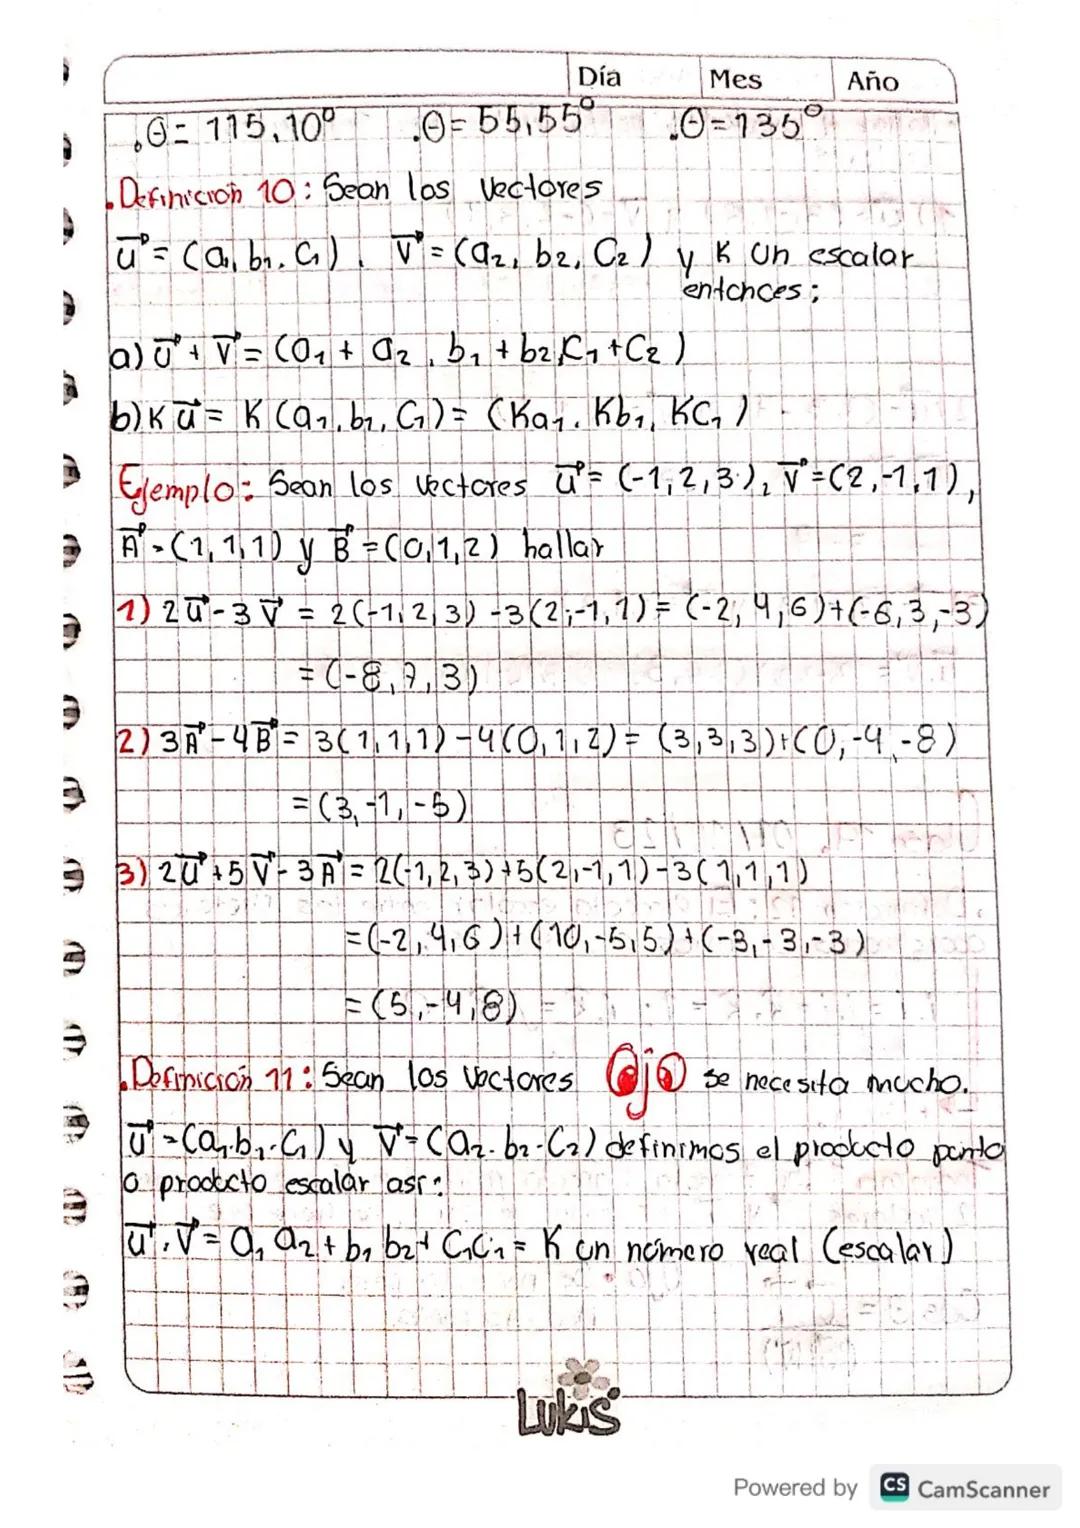 Día Mes Año
.θ= 115,10° .θ=55,55° .θ=135°
.Definición 10: Sean los vectores
u⃗ = (a₁, b₁, C₁), v⃗ = (a₂, b₂, C₂) y K un escalar
entonces;
a) u⃗ + v⃗ = (a₁ + a₂, b₁ + b₂, C₁ + C₂)
b) K u⃗ = K (a₁, b₁, C₁) = (Ka₁, Kb₁, KC₁)
Ejemplo: Sean los vectores u⃗ = (-1,2,3), v⃗ = (2,-1,1),
A⃗ = (1,1,1) y B⃗ = (0,1,2) hallar
1) 2u⃗ - 3v⃗ = 2(-1,2,3) -3(2,-1,1) = (-2,4,6)+(-6,3,-3)
= (-8,7,3)
2) 3A⃗ - 4B⃗ = 3(1,1,1) - 4(0,1,2) = (3,3,3)+(0,-4,-8)
= (3,-1,-5)
3) 2u⃗ + 5v⃗ - 3A⃗ = 2(-1,2,3)+5(2,-1,1)-3(1,1,1)
= (-2,4,6)+(10,-5,5)+(-3,-3,-3)
= (5,-4,8)
.Definición 11: Sean los vectores Ojo se necesita mucho.
u⃗ = (a₁.b₁.C₁) y v⃗ = (a₂.b₂.C₂) definimos el producto punto
o producto escalar así:
u⃗ . v⃗ = a₁ a₂ + b₁ b₂ + C₁C₁ = K un número real (escalar)
Lukis
Powered by CS CamScanner